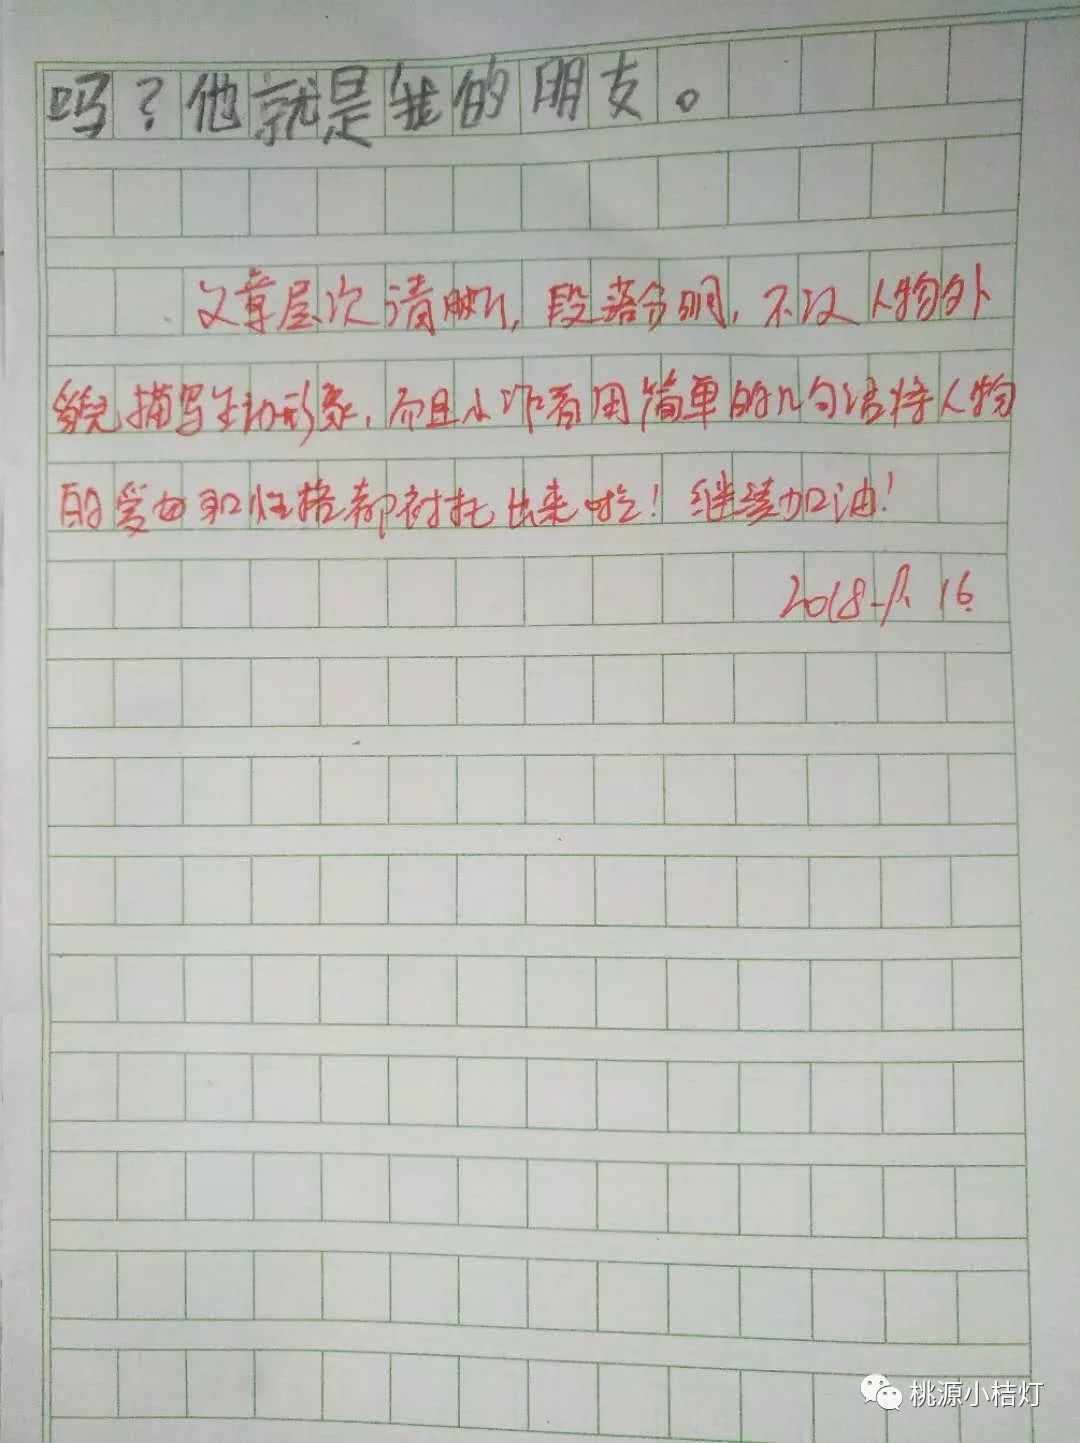 吗？他就是我的朋友。
文章层次清晰，段落分明，不仅人物外
貌描写生动形象，而且小作者用简单的几句话将人物
的爱好和性格都衬托出来啦！继续加油！
2018 16
桃源小桔灯